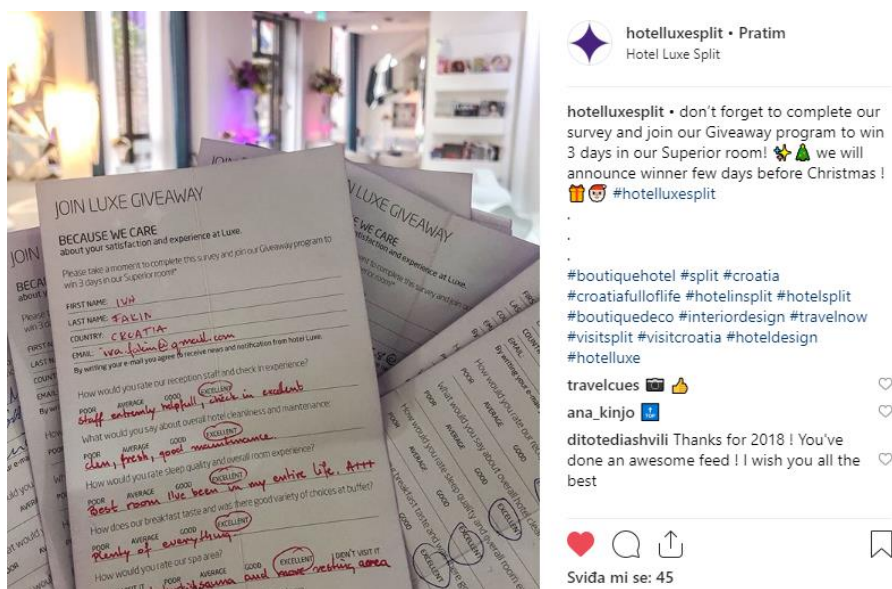 JOIN LUXE GIVEAWAY
BECAUSE WE CARE
about your satisfaction and experience at Luxe.
Please take a moment to complete this survey and join our Giveaway program to
win 3 days in our Superior room!*
FIRST NAME: IVA
LAST NAME: FAKIN
COUNTRY: CROATIA
EMAIL: iva.fakin@gmail.com
By writing your e-mail you agree to receive news and notification from hotel Luxe.
How would you rate our reception staff and check in experience?
POOR AVERAGE GOOD EXCELLENT
staff extremly helpfull, check in excelent
What would you say about overall hotel cleanliness and maintenance:
POOR AVERAGE GOOD EXCELLENT
clen, fresh, good maintenance
How would you rate sleep quality and overall room experience?
POOR AVERAGE GOOD EXCELLENT
Best room I've been in my entire life. A+++
How does our breakfast taste and was there good variety of choices at buffet?
POOR AVERAGE GOOD EXCELLENT
Plenty of everything.
How would you rate our spa area?
POOR AVERAGE GOOD EXCELLENT DIDN'T VISIT IT
sauna and more resting area
JOIN LUXE GIVEAWAY
WE CARE
hotelluxesplit • Pratim
Hotel Luxe Split
hotelluxesplit • don't forget to complete our
survey and join our Giveaway program to win
3 days in our Superior room! ✨🎄 we will
announce winner few days before Christmas !
🎁🎅 #hotelluxesplit
.
.
.
#boutiquehotel #split #croatia
#croatiafulloflife #hotelinsplit #hotelsplit
#boutiquedeco #interiordesign #travelnow
#visitsplit #visitcroatia #hoteldesign
#hotelluxe
travelcues 📷 👍
ana_kinjo 🔝
ditotediashvili Thanks for 2018 ! You've
done an awesome feed ! I wish you all the
best
Sviđa mi se: 45